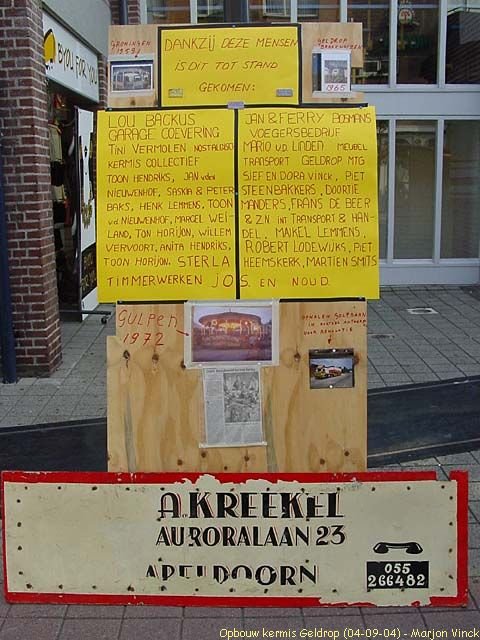 BYOU FOR YOU
GRONINGEN
1959!
DANKZIJ DEZE MENSEN
IS DIT TOT STAND
GEKOMEN:
GELDROP
1965
LOU BACKUS
GARAGE COEVERING
TINI VERMOLEN NOSTALGISCH
KERMIS COLLECTIEF
TOON HENDRIKS, JAN v.den
NIEUWENHOF, SASKIA & PETER
BAKS, HENK LEMMENS, TOON
v.d NIEUWENHOF, MARCEL WEI-
LAND, TON HORIJON, WILLEM
VERVOORT, ANITA HENDRIKS,
TOON HORIJON. STERLA
JAN & FERRY BOSMANS
VOEGERSBEDRIJF
MARIO v.d. LINDEN MEUBEL
TRANSPORT GELDROP MTG
SIEF EN DORA VINCK, PIET
STEENBAKKERS, DOORTJE
MANDERS, FRANS DE BEER
& ZN INT TRANSPORT & HAN-
DEL, MAIKEL LEMMENS,
ROBERT LODEWIJKS, PIET
HEEMSKERK, MARTIEN SMITS
TIMMERWERKEN JOS EN NOUD.
GULPEN
1972
OPHALEN GOLFBAAN
VOOR RENOVATIE
A. KREEKEL
AURORALAAN 23
APELDOORN
055
266482
Opbouw kermis Geldrop (04-09-04) - Marjon Vinck